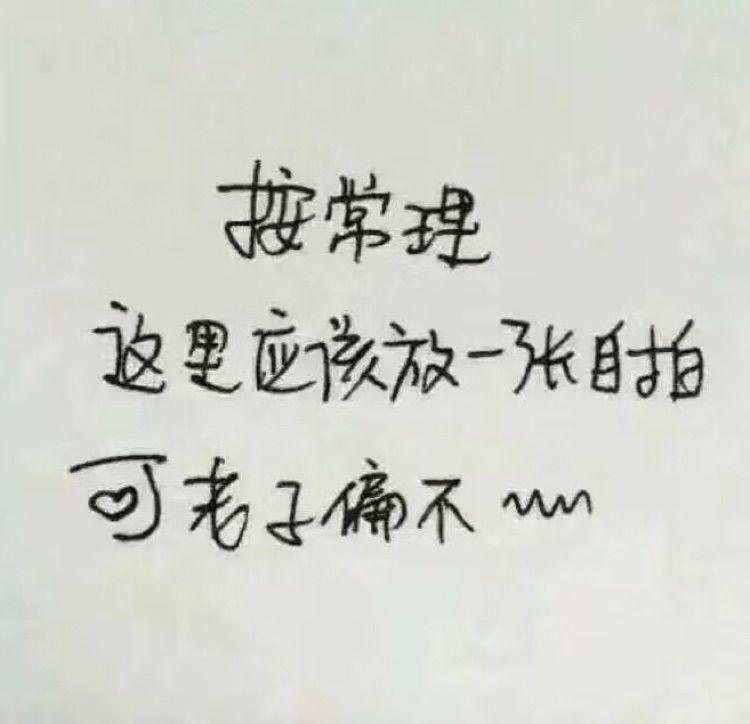 按常理
这里应该放一张自拍
可老子偏不~~~